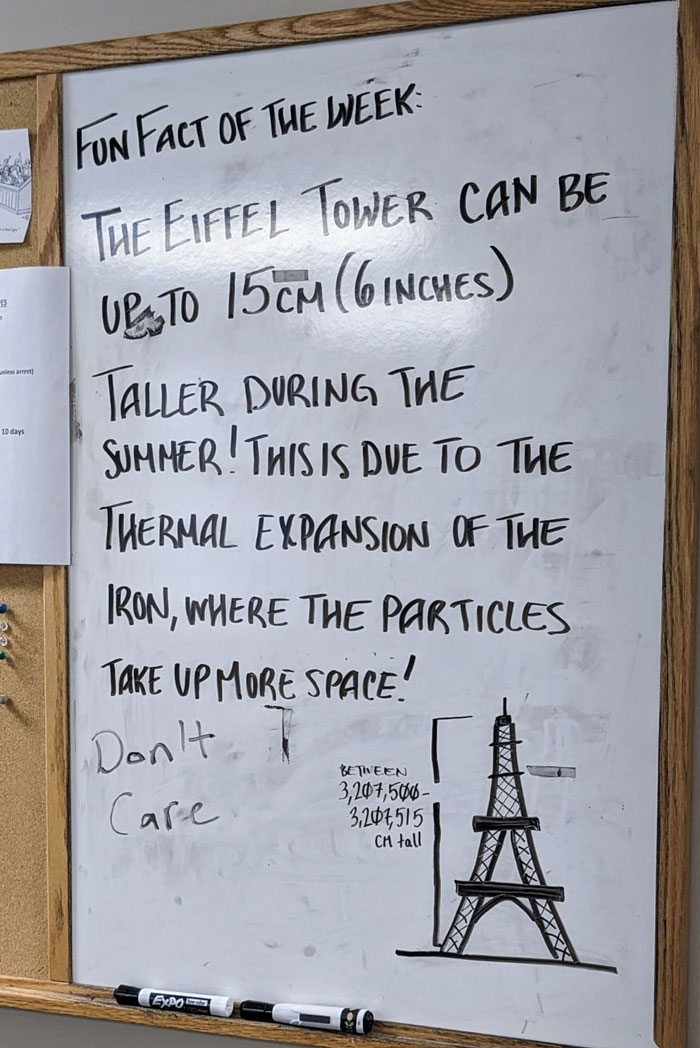 FUN FACT OF THE WEEK:
THE EIFFEL TOWER CAN BE
UP TO 15CM (6 INCHES)
TALLER DURING THE
SUMMER! THIS IS DUE TO THE
THERMAL EXPANSION OF THE
IRON, WHERE THE PARTICLES
TAKE UP MORE SPACE!
Don't
Care
BETWEEN
3,207,500-
3,207,515
CM tall
EXPO
unless arrest)
10 days